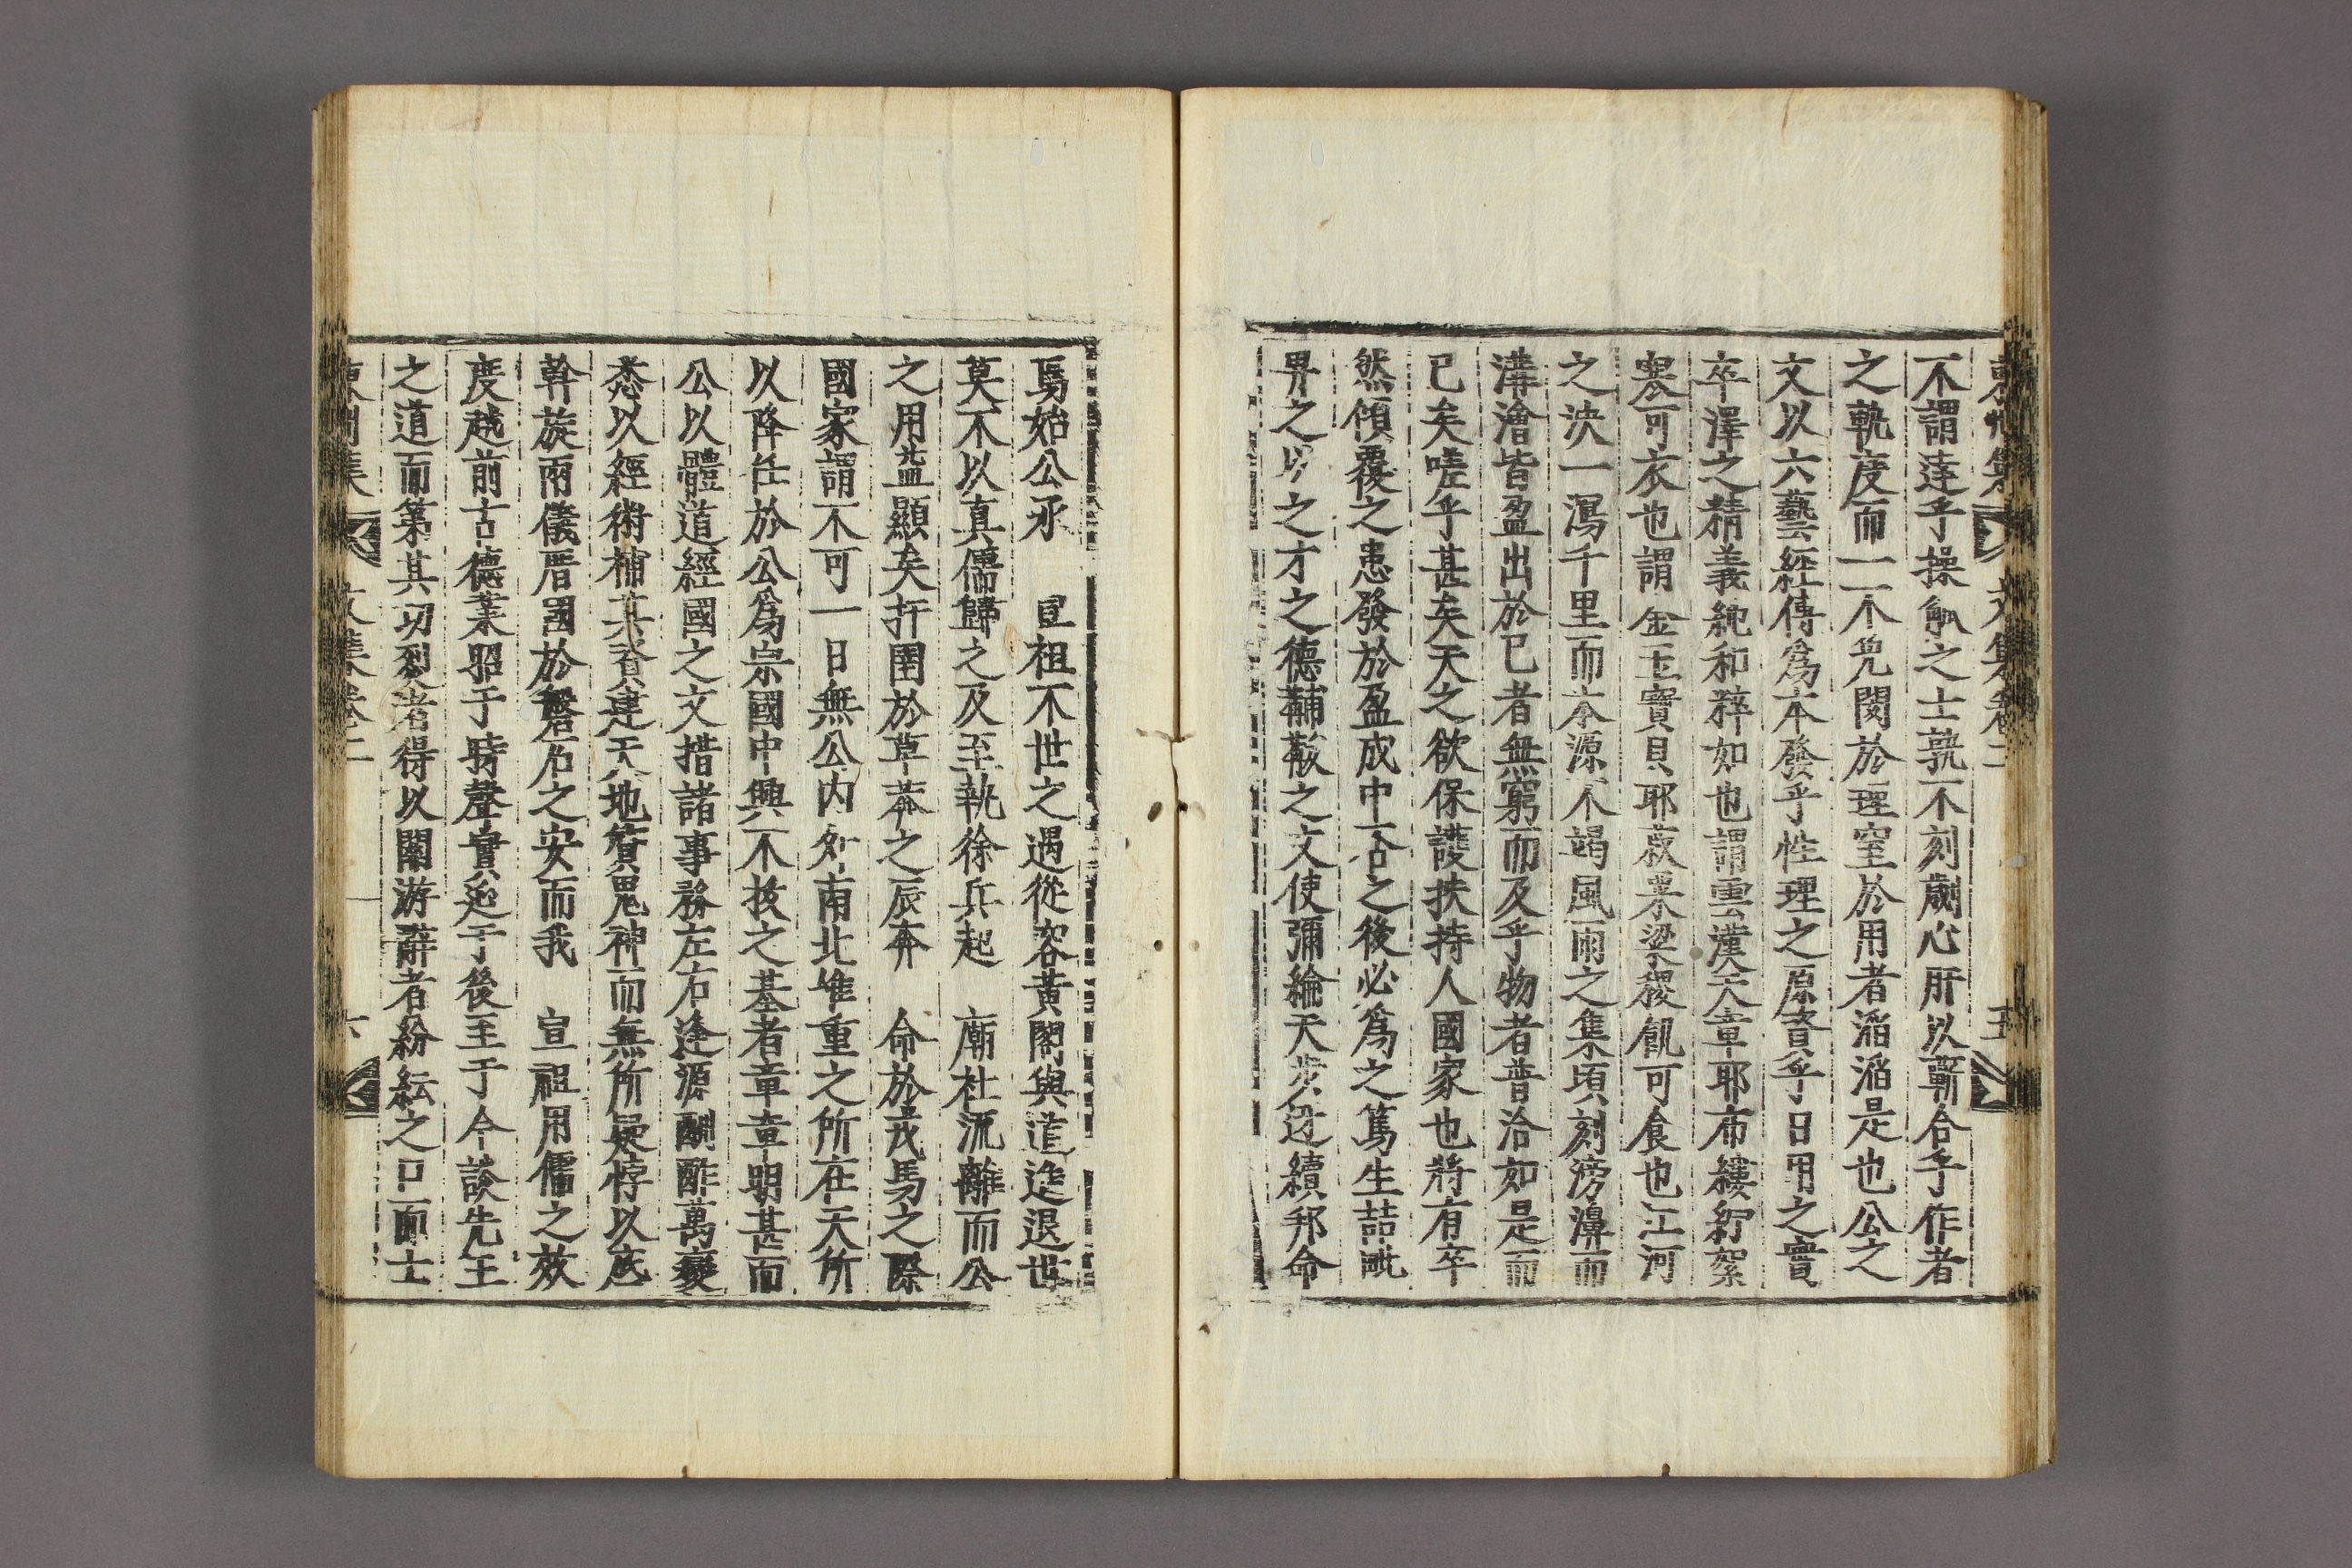 集 文集卷二 五
不謂達乎操觚之士孰不刻劌心肝以蘄合乎作者
之軌度而一一不免闋於理窒於用者滔滔是也公之
文以六藝經傳爲本發乎性理之原資乎日用之實
卒澤之精義純和粹如也謂雲漢天章耶布縷紵絮
寒可衣也謂金玉寶貝耶菽粟梁稷飢可食也江河
之决一瀉千里而本源不竭風雨之集頃刻滂濞而
溝澮皆盈出於已者無窮而及乎物者普洽如是而
已矣嗟乎甚矣天之欲保護扶持人國家也將有卒
然傾覆之患發於盈成中否之後必爲之篤生喆毗
畀之以之才之德黼黻之文使彌綸天步迓續邦命
焉始公承 宣祖不世之遇從容黃閣與道進退世
莫不以真儒歸之及至執徐兵起 廟社流離而公
之用益顯矣扞圉於草莽之辰奔 命於戎馬之際
國家謂不可一日無公内外南北唯重之所在天所
以降任於公爲宗國中興不拔之基者章章明甚而
公以體道經國之文措諸事務左右逢源酬酢萬變
悉以經術補其資建天地質鬼神而無所疑悖以底
幹旋兩儀厝國於磐石之安而我 宣祖用儒之效
度越前古德業昭于時聲實延于後至于今談先王
之道而第其功烈者得以闌游辭者紛紜之口而士
集 文集卷二 六